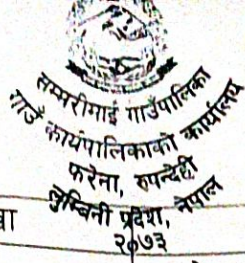 सम्मरीमाई गाउँपालिका
गाउँ कार्यपालिकाको कार्यालय
फरेना, रुपन्देही
लुम्बिनी प्रदेश, नेपाल
वा
२०७३